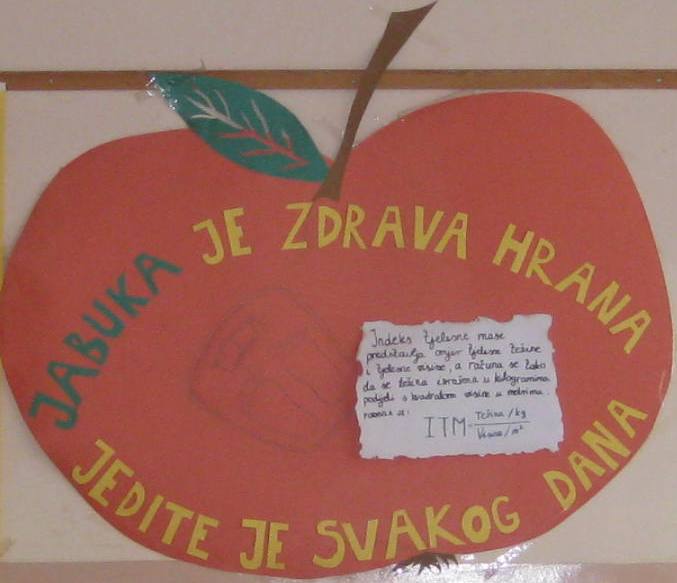 JABUKA JE ZDRAVA HRANA
Indeks tjelesne mase
predstavlja omjer tjelesne težine
i tjelesne visine, a računa se tako
da se težina izražena u kilogramima
podijeli s kvadratom visine u metrima.
ITM = Težina / kg
Visina / m²
JEDITE JE SVAKOG DANA